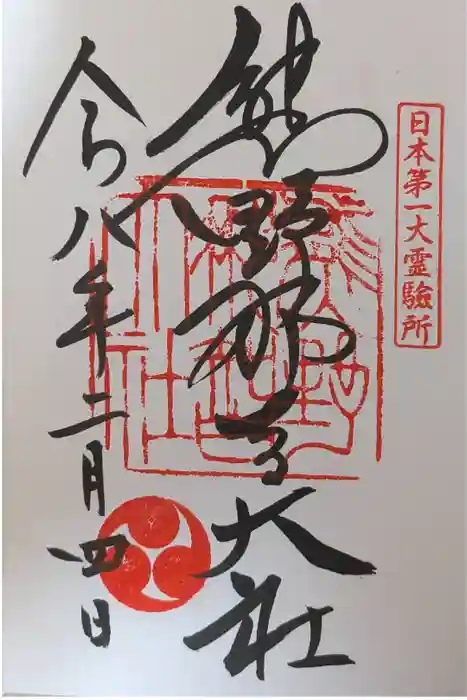 日本第一大霊験所
熊野那智大社
令八年二月四日